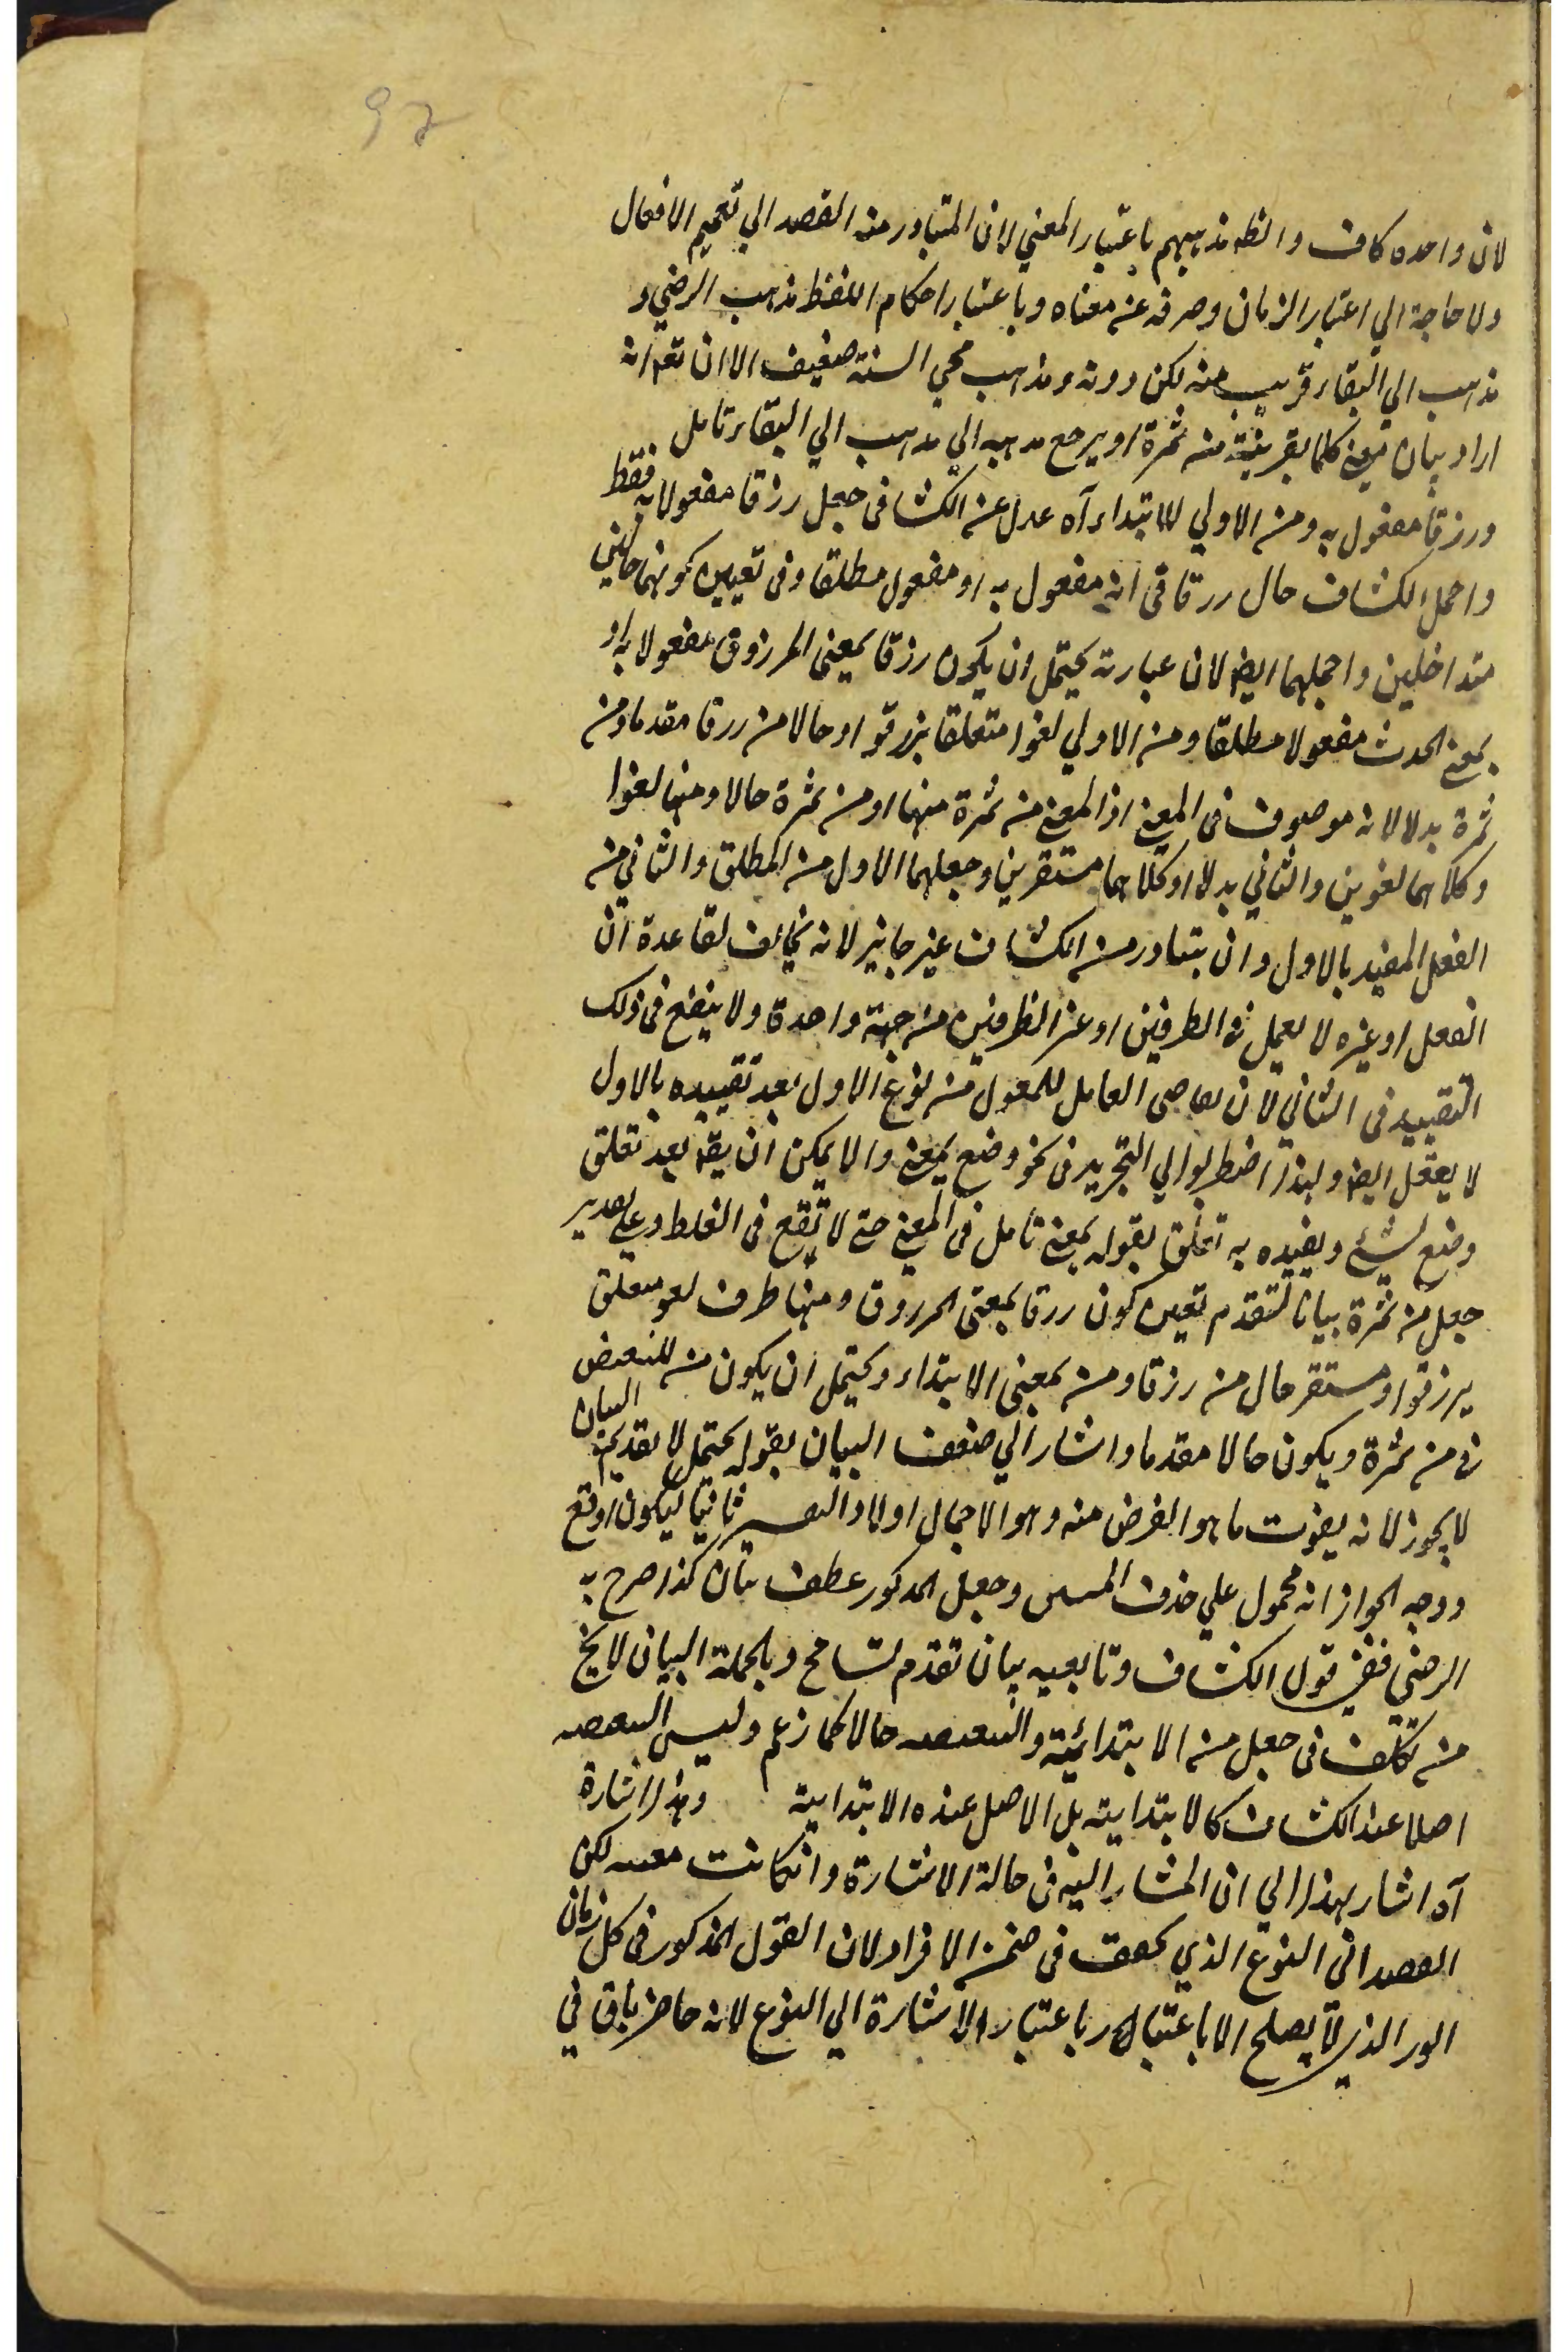 97
لان واحده كاف والظ مذهبهم باعتبار المعني لان المتبادر منه القصد الي تعميم الافعال
ولا حاجة الي اعتبار الزمان وصرفه عن معناه وباعتبار احكام اللفظ مذهب الرضي و
مذهب ابي البقاء قريب منه لكن دونه ومذهب محي السنة ضعيف الا ان يقم انه
اراد بيان معنى كلما بقرينة من ثمرة او يرجع مذهبه الي مذهب ابي البقاء تامل
ورزقا مفعول به ومن الاولي للابتداء آه عدل عن الكشاف في جعل رزقا مفعولا به فقط
واجمل الكشاف حال رزقا في انه مفعول به او مفعول مطلقا وفي تعيين كونهما حالين
متداخلين واجملهما ايض لان عبارته يحتمل ان يكون رزقا بمعنى المرزوق مفعولا به او
بمعنى الحدث مفعولا مطلقا ومن الاولي لغوا متعلقا بزرقوا او حالا من رزقا مقدما ومن
ثمرة بدلا لانه موصوف في المعنى اذ المعنى من ثمرة منها او من ثمرة حالا ومنها لغوا
وكلاهما لغوين والثاني بدلا او كلاهما مستقرين وجعلهما الاول من المطلق والثاني من
الفعل المقيد بالاول وان يتبادر من الكشاف غير جايز لانه يخالف لقاعدة ان
الفعل او غيره لا يعمل في الظرفين او غير الظرفين من جهة واحدة ولا ينفع في ذلك
التقييد في الثاني لان تقاضي العامل للمعمول من نوع الاول بعد تقييده بالاول
لا يعقل ايض ولهذا اضطربوا الي التجريد في نحو وضع بمعنى والا يمكن ان يقم بعد تعلق
وضع لشيء وتقييده به تعلق بقوله بمعنى تامل في المعنى حتى لا تقع في الغلط وعلى تقدير
جعل من ثمرة بيانا لتقدم تعين كون رزقا بمعنى المرزوق ومنها ظرف لغو متعلق
برزقوا او مستقر حال من رزقا ومن بمعنى الابتداء ويحتمل ان يكون من للتبعيض
في من ثمرة ويكون حالا مقدما واشار الي ضعف البيان بقوله يحتمل لا تقديم البيان
لا يجوز لانه يفوت ما هو الغرض منه وهو الاجمال اولا والتفسير ثانيا ليكون اوقع
ووجه الجواز انه محمول علي حذف المبين وجعل المذكور عطف بيان كذا صرح به
الرضي ففي قول الكشاف وتابعيه بيان تقدم تسامح وبالجملة البيان لا يخ
من تكلف في جعل من الابتدائية والتبعيضه حالا كما زعم وليس التبعيضه
اصلا عند الكشاف كالابتدايته بل الاصل عنده الابتدايته وهذا اشارة
آه اشار بهذا الي ان المشار اليه في حالة الاشارة وان كانت معينه لكن
القصد الى النوع الذي تحقق في ضمن الافراد لان القول المذكور في كل زمان
الذي لا يصلح الا باعتبار الاشارة الي النوع لانه حاضر باق في